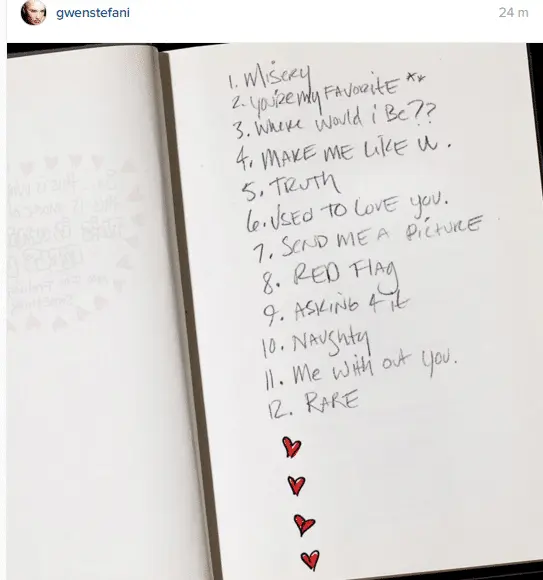 gwenstefani 24 m
1. Misery
2. you're my FAVORITE **
3. Where would i Be??
4. MAKE ME LIKE U.
5. TRUTH
6. USED TO LOVE YOU.
7. SEND ME A PICTURE
8. RED FLAg
9. ASKING 4 it
10. NAUghty
11. Me With out You.
12. RARE